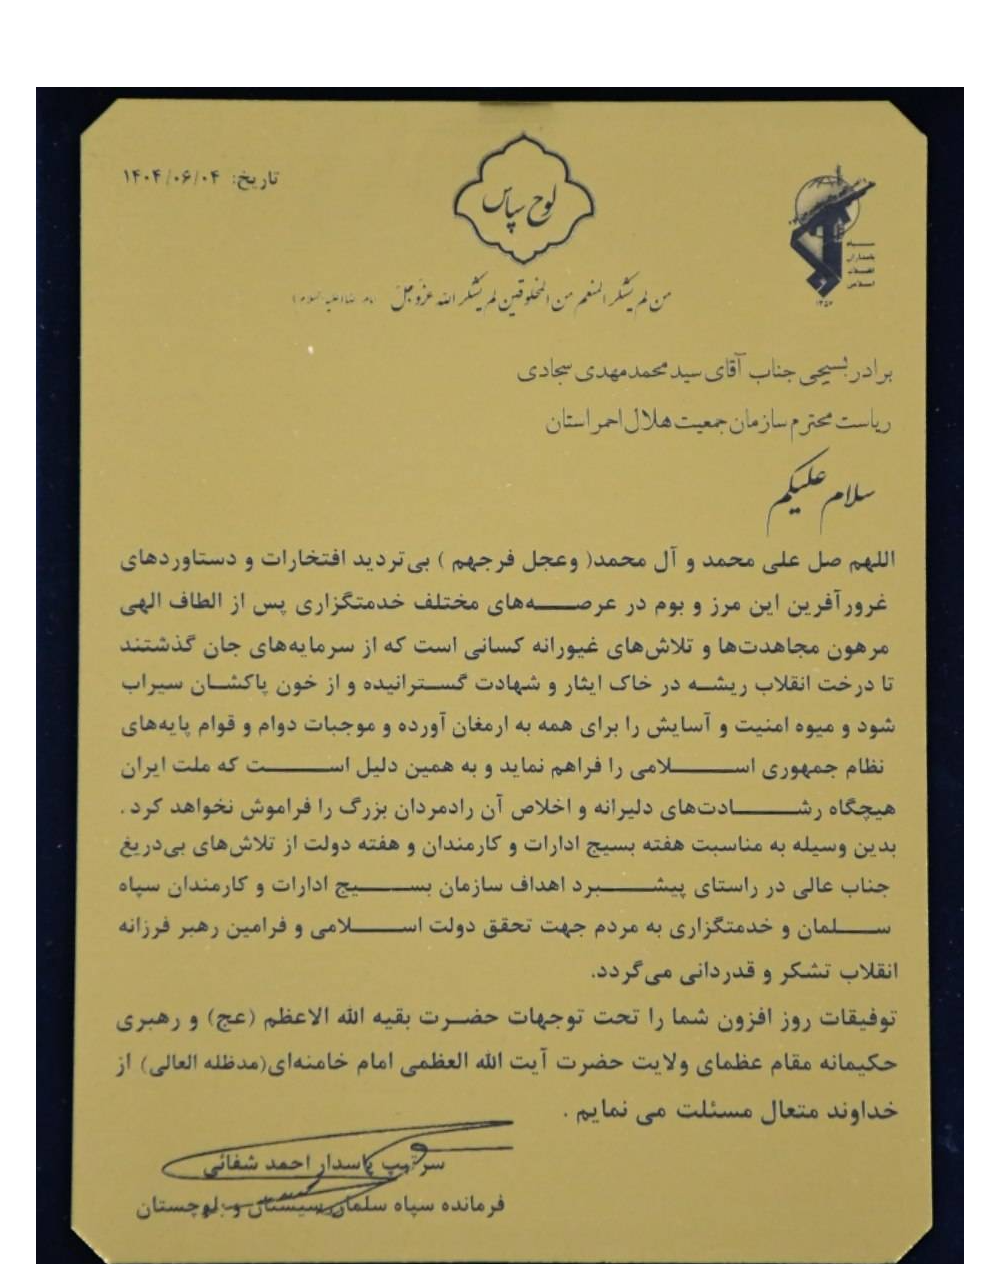 تاریخ: ۱۴۰۴/۰۶/۰۴
لوح سپاس
سپاه
پاسداران
انقلاب
اسلامی
من لم یشکر المنعم من المخلوقین لم یشکر الله عزوجل امام رضا(علیه السلام)
برادر بسیجی جناب آقای سید محمدمهدی سجادی
ریاست محترم سازمان جمعیت هلال احمر استان
سلام علیکم
اللهم صل علی محمد و آل محمد( وعجل فرجهم ) بی‌تردید افتخارات و دستاوردهای
غرورآفرین این مرز و بوم در عرصه‌های مختلف خدمتگزاری پس از الطاف الهی
مرهون مجاهدت‌ها و تلاش‌های غیورانه کسانی است که از سرمایه‌های جان گذشتند
تا درخت انقلاب ریشه در خاک ایثار و شهادت گسترانیده و از خون پاکشان سیراب
شود و میوه امنیت و آسایش را برای همه به ارمغان آورده و موجبات دوام و قوام پایه‌های
نظام جمهوری اسلامی را فراهم نماید و به همین دلیل است که ملت ایران
هیچگاه رشادت‌های دلیرانه و اخلاص آن رادمردان بزرگ را فراموش نخواهد کرد .
بدین وسیله به مناسبت هفته بسیج ادارات و کارمندان و هفته دولت از تلاش‌های بی‌دریغ
جناب عالی در راستای پیشبرد اهداف سازمان بسیج ادارات و کارمندان سپاه
سلمان و خدمتگزاری به مردم جهت تحقق دولت اسلامی و فرامین رهبر فرزانه
انقلاب تشکر و قدردانی می‌گردد.
توفیقات روز افزون شما را تحت توجهات حضرت بقیه الله الاعظم (عج) و رهبری
حکیمانه مقام عظمای ولایت حضرت آیت الله العظمی امام خامنه‌ای(مدظله العالی) از
خداوند متعال مسئلت می نمایم .
سرتیپ پاسدار احمد شفائی
فرمانده سپاه سلمان سیستان و بلوچستان